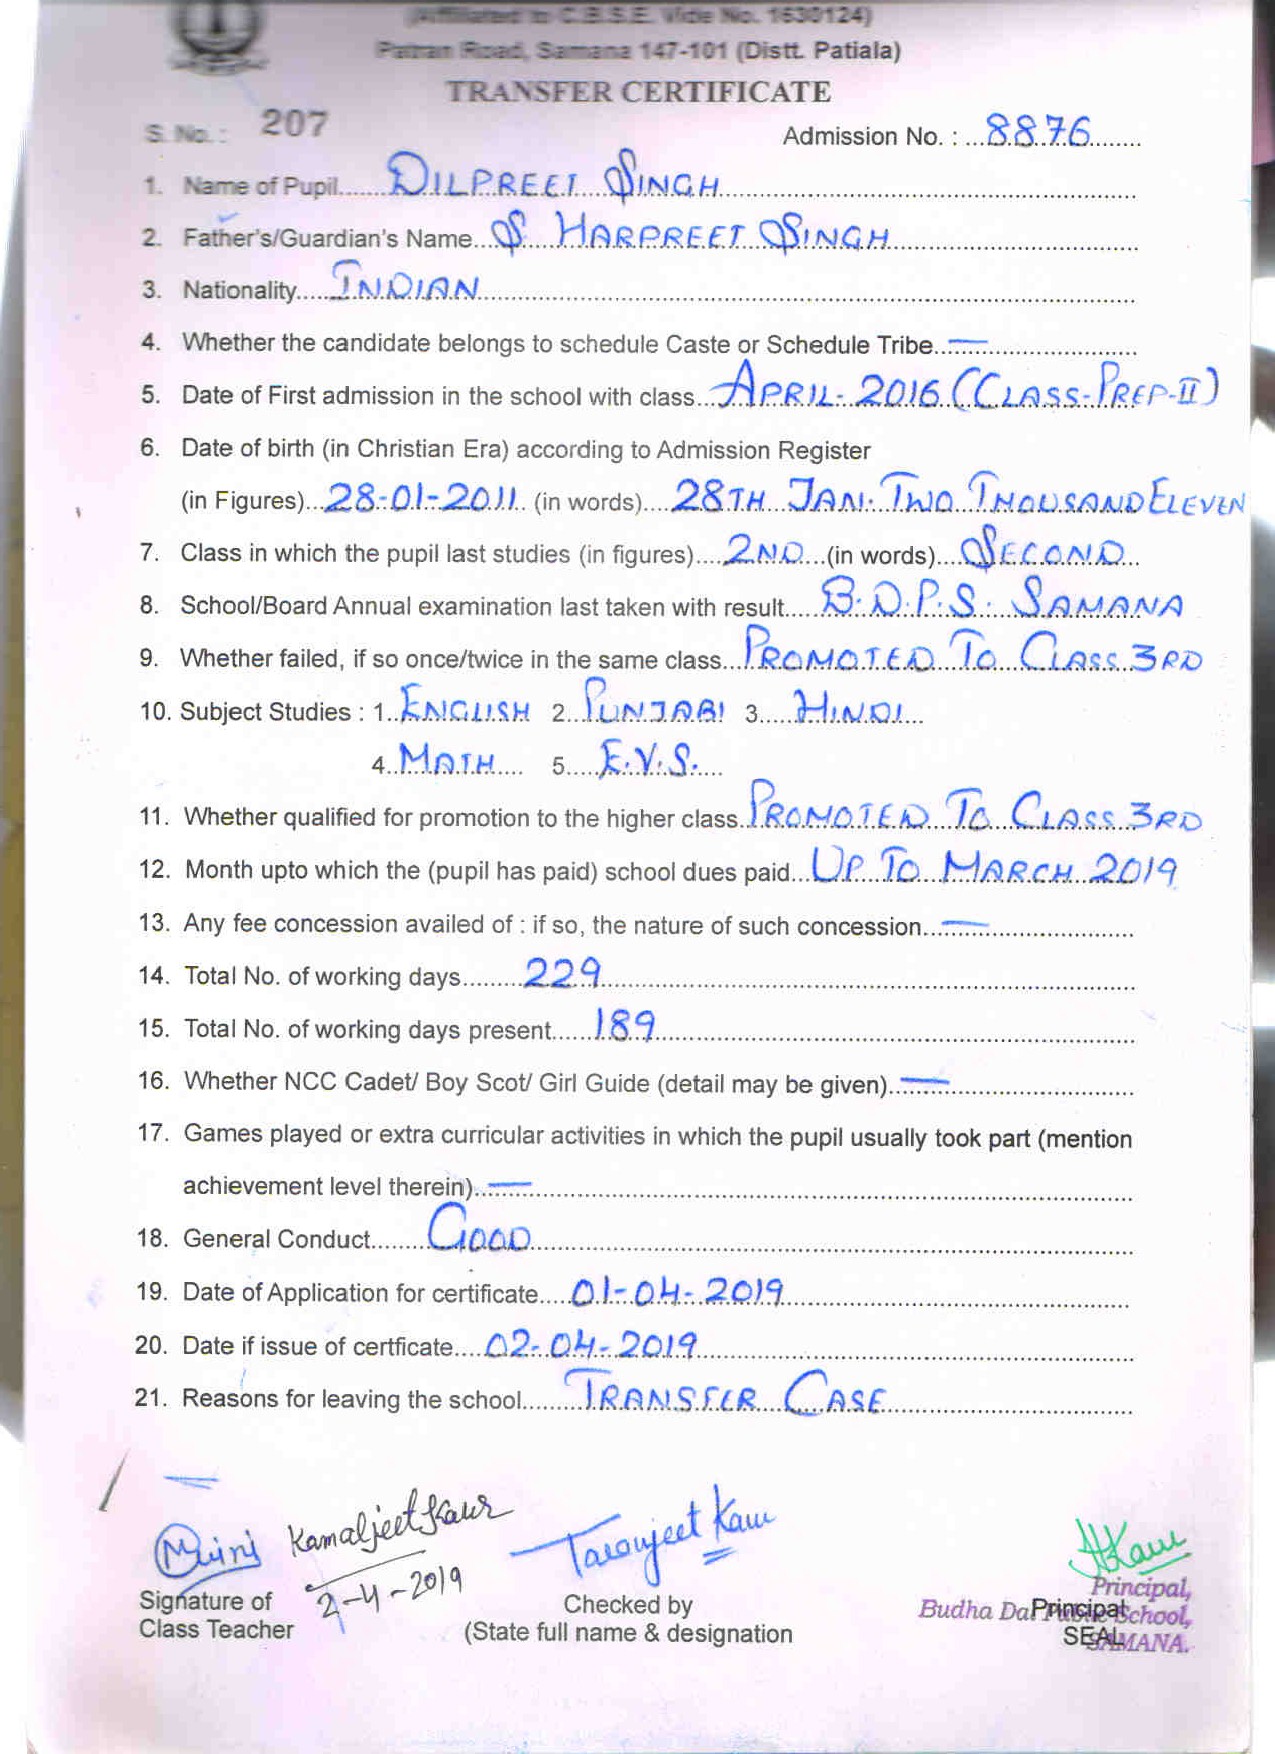 (Affiliated to C.B.S.E. Vide No. 1630124)
Patran Road, Samana 147-101 (Distt. Patiala)
TRANSFER CERTIFICATE
S. No. : 207 Admission No. : 8876
1. Name of Pupil DILPREET SINGH
2. Father's/Guardian's Name S. HARPREET SINGH
3. Nationality INDIAN
4. Whether the candidate belongs to schedule Caste or Schedule Tribe —
5. Date of First admission in the school with class APRIL-2016 (CLASS-PREP-II)
6. Date of birth (in Christian Era) according to Admission Register
(in Figures) 28-01-2011 (in words) 28TH JAN. TWO THOUSAND ELEVEN
7. Class in which the pupil last studies (in figures) 2ND (in words) SECOND
8. School/Board Annual examination last taken with result B.D.P.S. SAMANA
9. Whether failed, if so once/twice in the same class PROMOTED TO CLASS 3RD
10. Subject Studies : 1. ENGLISH 2. PUNJABI 3. HINDI
4. MATH 5. E.V.S.
11. Whether qualified for promotion to the higher class PROMOTED TO CLASS 3RD
12. Month upto which the (pupil has paid) school dues paid UP TO MARCH 2019
13. Any fee concession availed of : if so, the nature of such concession —
14. Total No. of working days 229
15. Total No. of working days present 189
16. Whether NCC Cadet/ Boy Scot/ Girl Guide (detail may be given) —
17. Games played or extra curricular activities in which the pupil usually took part (mention
achievement level therein) —
18. General Conduct GOOD
19. Date of Application for certificate 01-04-2019
20. Date if issue of certficate 02-04-2019
21. Reasons for leaving the school TRANSFER CASE
Kamaljeet Kaur Taranjeet Kaur
2-4-2019
Signature of
Class Teacher
Checked by
(State full name & designation
Principal
SEAL
Principal,
Budha Dal Public School,
SAMANA.